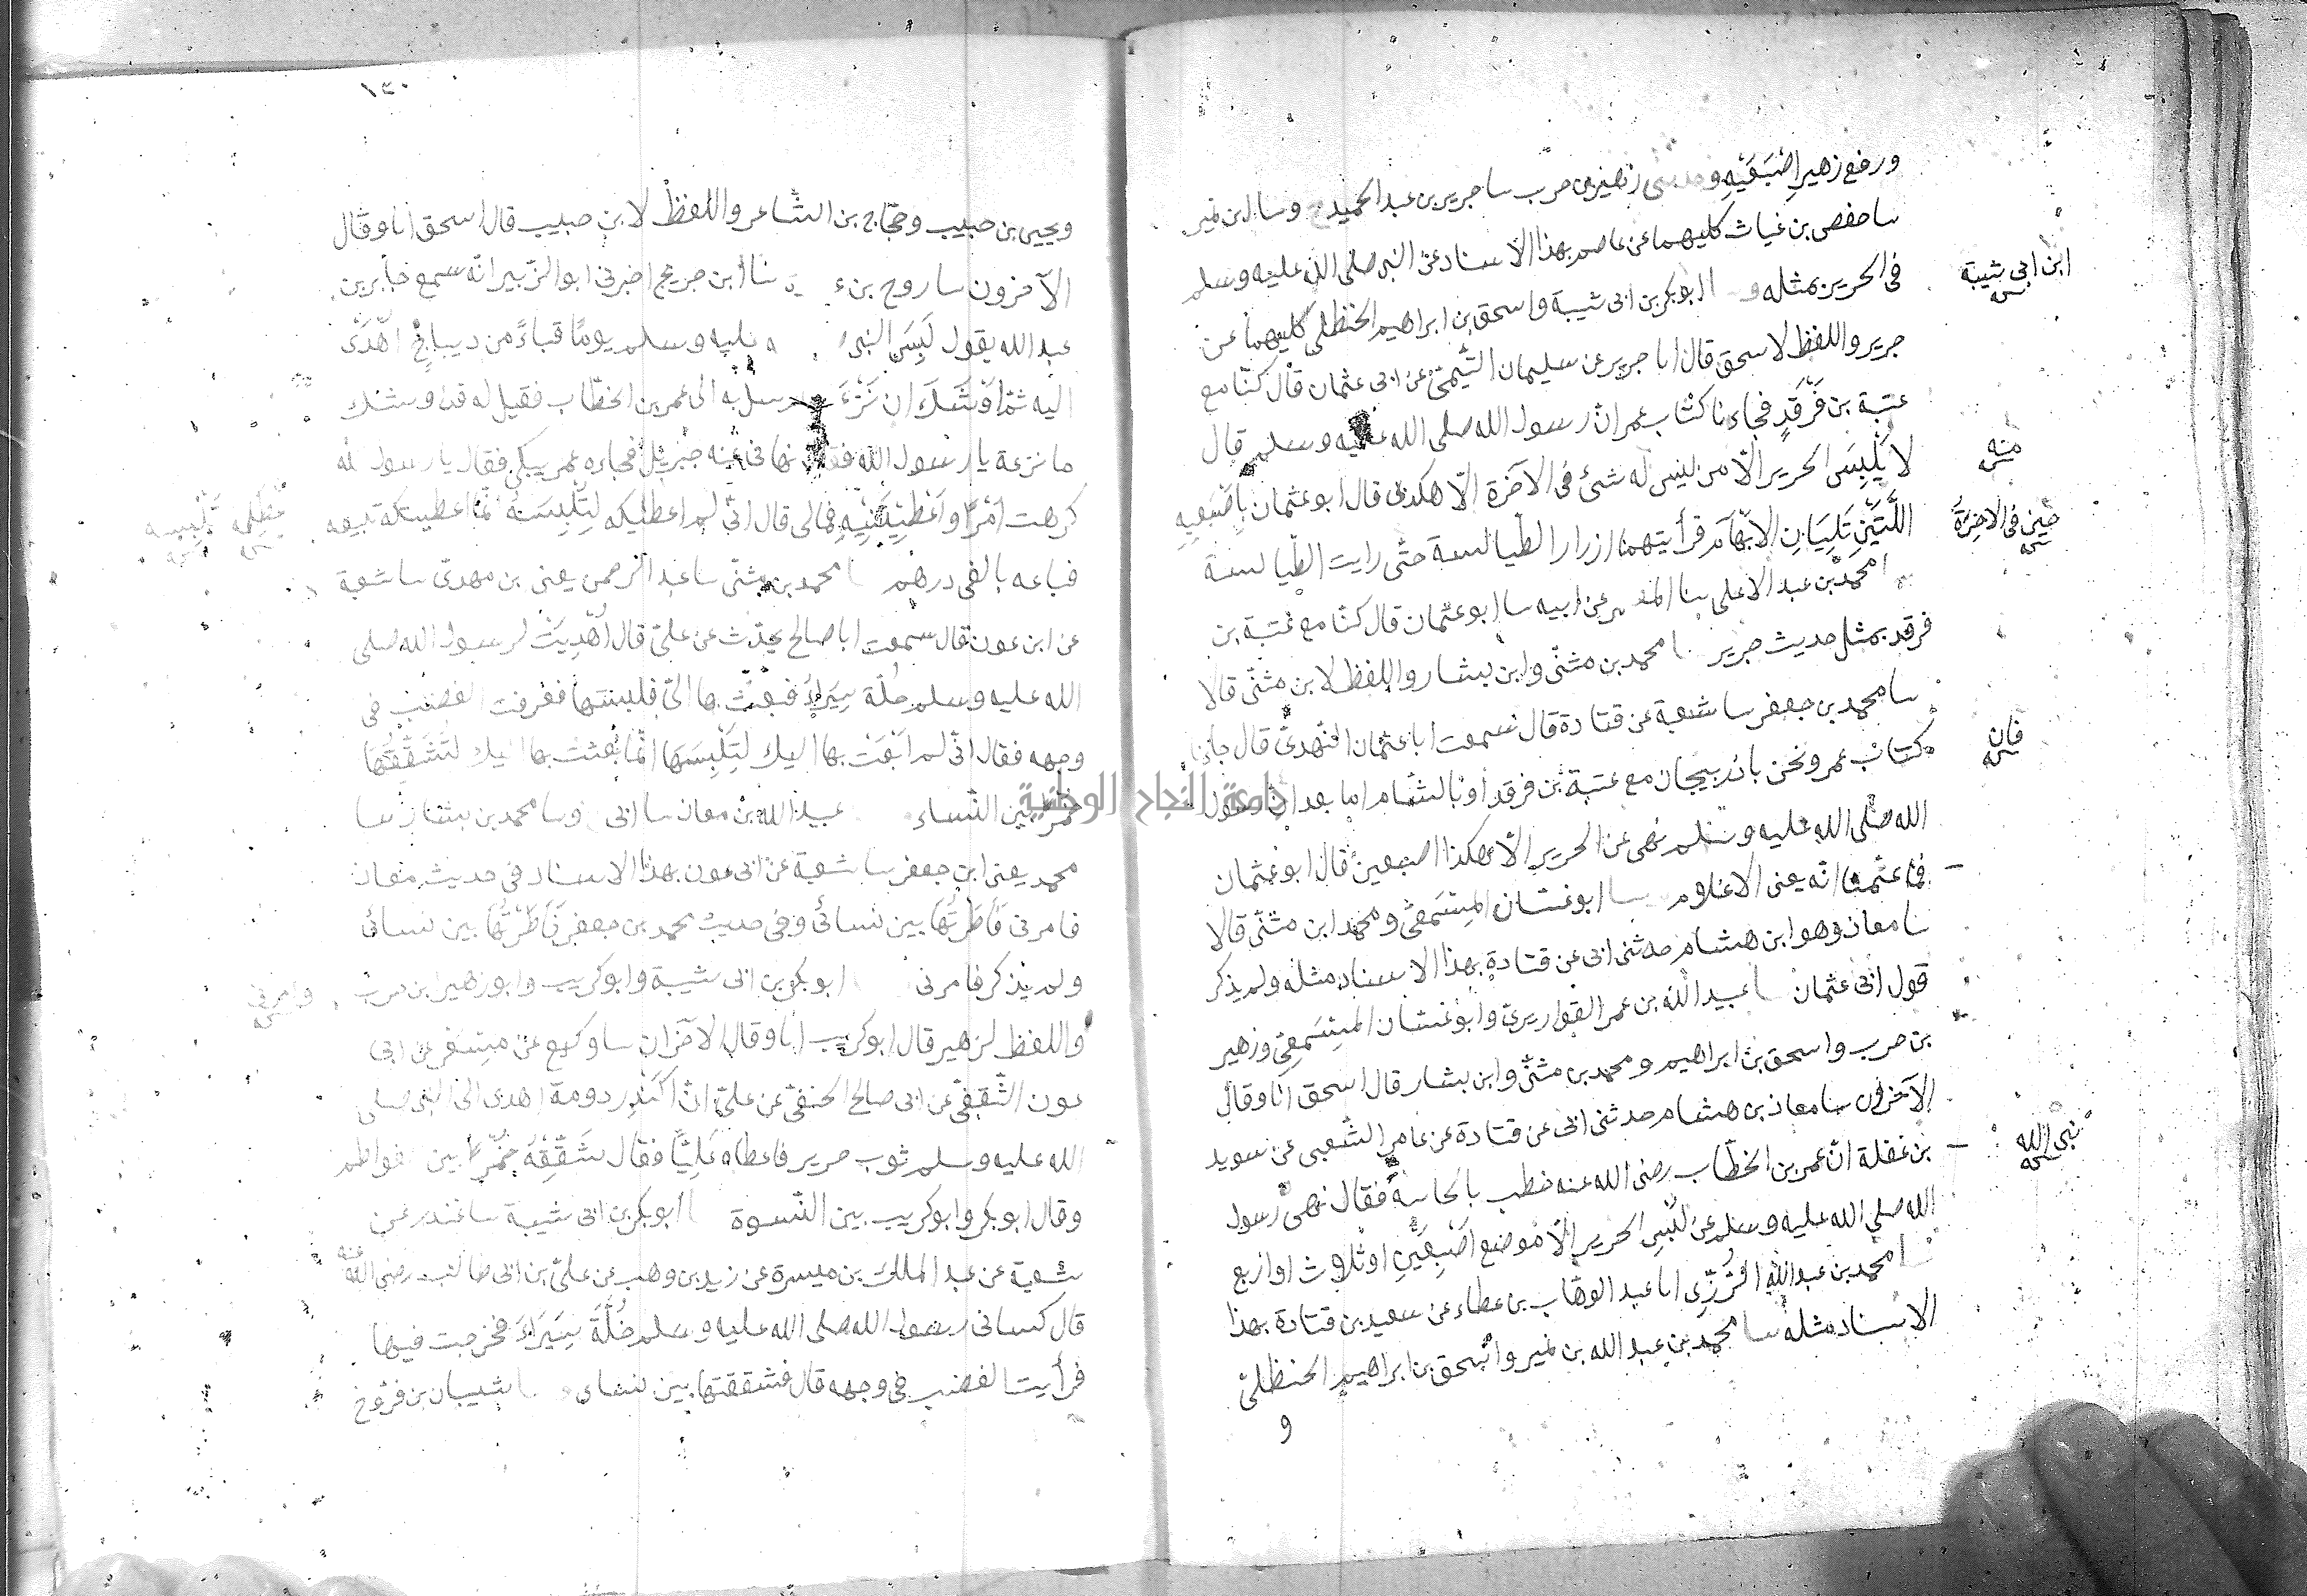 ورفع زهير إصبعيه وحدثنى زهير بن حرب سا جرير بن عبد الحميد وسا ابن نمير
سا حفص بن غياث كليهما عن عاصم بهذا الاسناد عن النبى صلى الله عليه وسلم
فى الحرير بمثله و ابو بكر بن ابى شيبة واسحق بن ابراهيم الحنظلى كليهما عن
ابن ابى شيبة
جرير واللفظ لاسحق قال انا جرير عن سليمان التيمىّ عن ابى عثمان قال كنّا مع
عتبة بن فَرْقَدٍ فجاءنا كتاب عمر انّ رسول الله صلى الله عليه وسلم قال
لا يَلْبِسَ الحرير الّا من ليس له شئ فى الآخرة الّا هكذى قال ابو عثمان بإصبعيه
منه
اللَّتَيْنِ تَلِيَانِ الابهام فرأيتهما ازرار الطيالسة حتّى رايت الطيالسة
حين فى الآخرة
محمد بن عبد الاعلى سا المعتمر عن ابيه سا ابو عثمان قال كنّا مع عتبة بن
فرقد بمثل حديث جرير سا محمد بن مثنّى وابن بشار واللفظ لابن مثنّى قالا
سا محمد بن جعفر سا شعبة عن قتادة قال سمعت ابا عثمان النّهدىّ قال جاءنا
كتاب عمر ونحن باذربيجان مع عتبة بن فرقد أو بالشام اما بعد انّ رسول
فإن
الله صلى الله عليه وسلم نهى عن الحرير الّا هكذا اصبعين قال ابو عثمان
فما عتّمنا انّه يعنى الاعلام سا ابو غسّان المِسْمَعىّ ومحمد ابن مثنّى قالا
سا معاذ وهو ابن هشام حدثنى ابى عن قتادة بهذا الاسناد مثله ولم يذكر
قول ابى عثمان سا عبيد الله بن عمر القواريرىّ وابو غسّان المِسْمَعِىّ وزهير
بن حرب واسحق بن ابراهيم ومحمد بن مثنّى وابن بشار قال اسحق انا وقال
الآخرون سا معاذ بن هشام حدثنى ابى عن قتادة عن عامر الشّعبى عن سويد
بن غفلة انّ عمر بن الخطّاب رضى الله عنه خطب بالجابية فقال نهى رسول
نبى الله
الله صلى الله عليه وسلم عن لُبْسِ الحرير الّا موضع اصْبعَيْنِ او ثلاث او اربع
سا محمد بن عبد الله الرُّزِّى انا عبد الوهّاب بن عطاء عن سعيد بن قتادة بهذا
الاسناد مثله سا محمد بن عبد الله بن نمير واسحق بن ابراهيم الحنظلىّ
و
١٣٠
ويحيى بن حبيب وحجّاج بن الشّاعر واللفظ لابن حبيب قال اسحق انا وقال
الآخرون سا روح بن سا ابن جريج اخبرنى ابو الزّبير انّه سمع جابر بن
عبد الله يقول لَبِسَ النبى عليه وسلم يومًا قباءً من ديباجٍ اهْدَىَ
اليه ثمّ اوْشَكَ ان نَزْعَ فارسل به الى عمر بن الخطّاب فقيل له قد اوشك
ما نزعة يا رسول الله فقال نهانى عنه جبريل فجاءه عمر يبكى فقال يا رسول الله
كرهت أمرًا وأعْطَيْتَنِيْهِ فمالى قال انّى لم اعطيكه لِتَلْبِسَهُ انّما اعطيتكه تبيعه
أعطكه تلبسه
فباعه بالفى درهم سا محمد بن مثنّى سا عبد الرحمن يعنى بن مهدى سا شعبة
عن ابن عون قال سمعت ابا صالح يحدّث عن علىّ قال أُهْدِيَتْ لرسول الله صلى
الله عليه وسلم حُلّة سِيَرَاءُ فبعث بها الىّ فلبستها فعرفت الغضب فى
وجهه فقال انّى لم ابْعَث بها اليك لِتَلْبِسَهَا انّما بعثت بها اليك لتُشَقِّقَهَا
خُمُرًا بين النّساء عبيد الله بن معاذ سا ابى وسا محمد بن بشار سا
جامعة النجاح الوطنية
محمد يعنى ابن جعفر سا شعبة عن ابى عون بهذا الاسناد فى حديث معاذ
فامرنى فأَطَرْتُهَا بين نسائى وفى حديث محمد بن جعفر فَأَطَرْتُهَا بين نسائى
ولم يذكر فامرنى ابو بكر بن ابى شيبة وابو كريب وابو زهير ابن حرب
وامرنى
واللفظ لزهير قال ابو كريب انا وقال الآخران سا وكيع عن مِسْعَر عن ابى
عون الثّقفىّ عن ابى صالح الحنفىّ عن علىّ انّ اكَيْدِرَ دومة اهدى الى النبى صلى
الله عليه وسلم ثوب حرير فاعطاه عَلِيًّا فقال شَقِّقْهُ خُمُرًا بين الفواطم
وقال ابو بكر وابو كريب بين النّسوة سا ابو بكر بن ابى شيبة سا غندر عن
شعبة عن عبد الملك بن ميسرة عن زيد بن وهب عن علىّ بن ابى طالب رضى الله عنه
قال كسانى رسول الله صلى الله عليه وسلم حُلَّةَ سِيَرَاءَ فخرجت فيها
فرأيت الغضب فى وجهه قال فشققتها بين نساء سا شيبان بن فرّوخ